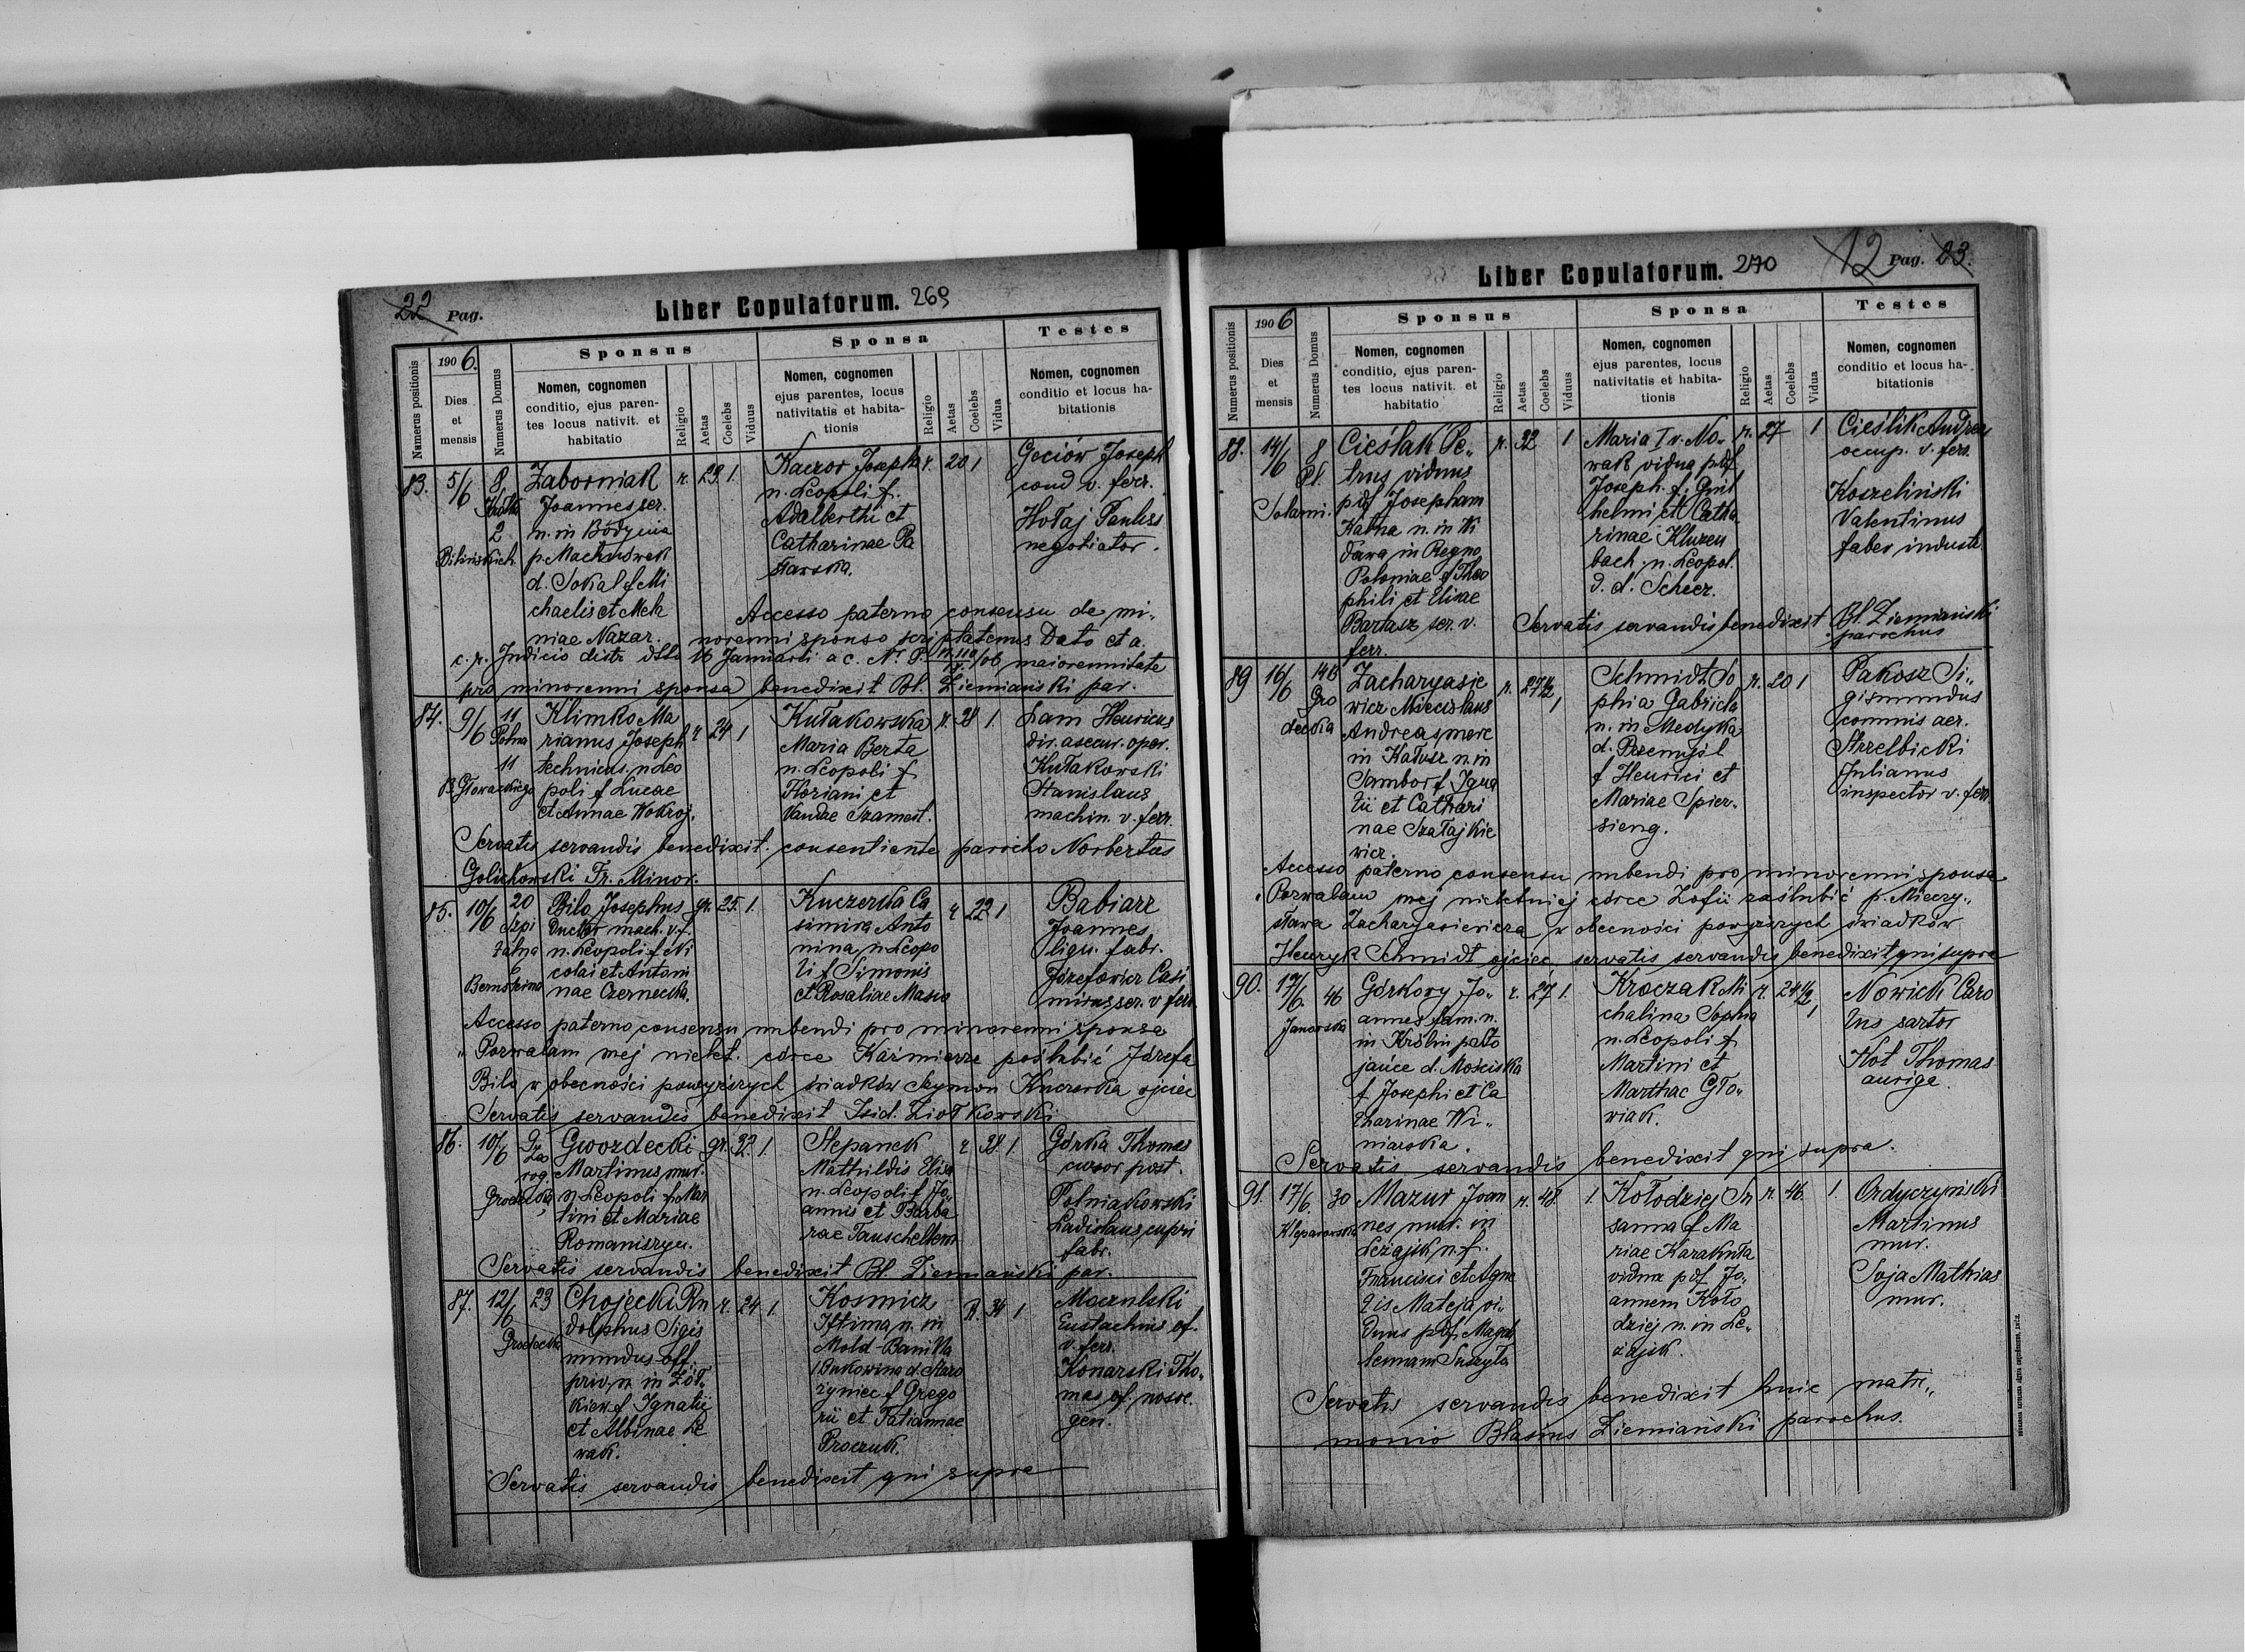 22 Pag.
Liber Copulatorum. 269
Numerus positionis
1906.
Dies
et
mensis
Numerus Domus
Sponsus
Nomen, cognomen
conditio, ejus paren-
tes locus nativit. et
habitatio
Religio
Aetas
Coelebs
Viduus
Sponsa
Nomen, cognomen
ejus parentes, locus
nativitatis et habita-
tionis
Religio
Aetas
Coelebs
Vidua
Testes
Nomen, cognomen
conditio et locus ha-
bitationis
83. 5/6 8
2
Bilińskich
Zaborniak
Joannes ser.
n. in Bódynia
p. Machnówek
d. Sokal f. Mi
chaelis et Mela
niae Nazar.
r. 29 1.
Kaczor Josepha
n. Leopoli f.
Adalberthi et
Catharinae Pa
sławska.
r. 20 1
Gociów Joseph
cond v. ferr.
Hołaj Paulus
negotiator.
Accesso paterno consensu de mi-
norenni sponso scri platenus Dato et a.
c. r. Judicio distr dtto 16 Januarii a c. Nr. P. /06 maiorennitate
pro minorenni sponsa benedixit Bl. Ziemiański par.
84. 9/6 11
Polna
11
B. Głowackiego
Klimko Ma
rianus Joseph
technicus. n Leo
poli f. Lucae
et Annae Wokroj.
r 24 1
Kułakowska
Maria Berta
n. Leopoli f.
Floriani et
Vandae Szameit.
r. 28 1.
Lam Henricus
dir. asecur. oper.
Kułakowski
Stanislaus
machin. v. ferr.
Servatis servandis benedixit. consentiente parocho Norbertus
Golichowski Fr. Minor.
85. 10/6 20
Szpi
talna
6
Bernsteina
Bilo Josephus
Ductor mach. v. f.
n. Leopoli f. Ni
colai et Antoni
nae Czernecka.
gr. 25. 1.
Kuczerka Ca
simira Anto
nina n. Leopo
li f. Simonis
et Rosaliae Masio
r 22 1
Babiarz
Joannes
lign. fabr.
Józefowicz Casi
mirus ser. v. ferr.
Accesso paterno consensu nubendi pro minorenni sponsa
„Pozwalam mej nielet. córce Kaźmierze poślubić Józefa
Bilo w obecności powyższych świadków Szymon Kuczerka ojciec
Servatis servandis benedixit Isid. Ziołkowski
86. 10/6 9
Za
rog.
Grodecka
Gwozdecki
Martinus mur.
n. Leopoli f. Mar
tini et Mariae
Romaniszyn.
gr. 32. 1.
Stepanek
Mathildis Elisa
n. Leopoli f. Jo-
annis et Barba
rae Tauschelhem
r 28. 1.
Górka Thomas
cursor post.
Polniakowski
Ladislaus cupri
fabr.
Servatis servandis benedixit Bl. Ziemiański par.
87. 12/6 23
Grodecka
Chojecki Ru
dolphus Sigis
mundus off.
priv. n. in Żół-
kiew f. Ignatii
et Albinae Le
wak.
r. 24 1.
Kosmicz
Iftima n. in
Mold-Banilla
Bukowina d. Staro
żyniec f. Grego
rii et Tatiannae
Proczuk.
R. 34 1
Moczulski
Eustachius of.
v. ferr.
Konarski Tho-
mas of. nosoc.
gen.
Servatis servandis benedixit qui supra
12 Pag. 23.
Liber Copulatorum. 270
Numerus positionis
1906
Dies
et
mensis
Numerus Domus
Sponsus
Nomen, cognomen
conditio, ejus paren-
tes locus nativit. et
habitatio
Religio
Aetas
Coelebs
Viduus
Sponsa
Nomen, cognomen
ejus parentes, locus
nativitatis et habita-
tionis
Religio
Aetas
Coelebs
Vidua
Testes
Nomen, cognomen
conditio et locus ha-
bitationis
88. 14/6 8
Pl.
Solarni.
Cieślak Pe-
trus viduus
pdf Josepham
Kahna n. in Wi
dawa in Regno
Poloniae f. Theo
phili et Elisae
Bartasz ser. v.
ferr.
r. 32 1
Maria I v. No-
wak vidua pdf
Joseph. f. Guil
helmi et Catha
rinae Kluzen
bach n. Leopol.
d. d. Scherz.
r. 27 1
Cieślik Andreas
occup. v. ferr.
Koszeliński
Valentinus
faber industr.
Servatis servandis benedixit Bl. Ziemiański
parochus
89 16/6 148
Gro
decka
Zacharyasie
wicz Miecislaus
Andreas merc
in Kałusz n. in
Sambor f. Igna
tii et Cathari
nae Szałajkie
wicz.
r. 27 1/2 1
Schmidt So
phia Gabriela
n. in Medyka
d. Przemyśl
f. Henrici et
Mariae Spier-
sieng.
r. 20 1
Pakosz Si-
gismundus
commis aer.
Strzelbicki
Julianus
inspector v. ferr.
Accesso paterno consensu nubendi pro minorenni sponsa
„Pozwalam mej nieletniej córce Zofii zaślubić p. Mieczy-
sława Zacharyasiewicza w obecności powyższych świadków
Henryk Schmidt ojciec servatis servandis benedixit qui supra
90. 17/6. 46
Janowska
Górkowy Jo-
annes fam. n.
in Królin p. Sto
jańce d. Mościska
f. Josephi et Ca
tharinae Wi-
niarska.
r. 27 1.
Kroczak Mi
chalina Sophia
n. Leopoli f.
Martini et
Marthae Gło-
wiak.
r. 24 1/2 1
Nowick Caro
lus sartor
Kot Thomas
auriga.
Servatis servandis benedixit qui supra.
91. 17/6. 30
Kleparowska
Mazur Joan
nes mur. in
Leżajsk n. f.
Francisci et Agne
tis Mateja vi-
duus pdf. Magda
lenam Suszyła
r. 48. 1.
Kołodziej Su
sanna f. Ma
riae Karakuła
vidua pdf. Jo-
annem Koło
dziej n. in Le-
żajsk.
r. 46. 1.
Ordyczyński
Martinus
mur.
Soja Mathias
mur.
Servatis servandis benedixit huic matri-
monio Blasius Ziemiański parochus.